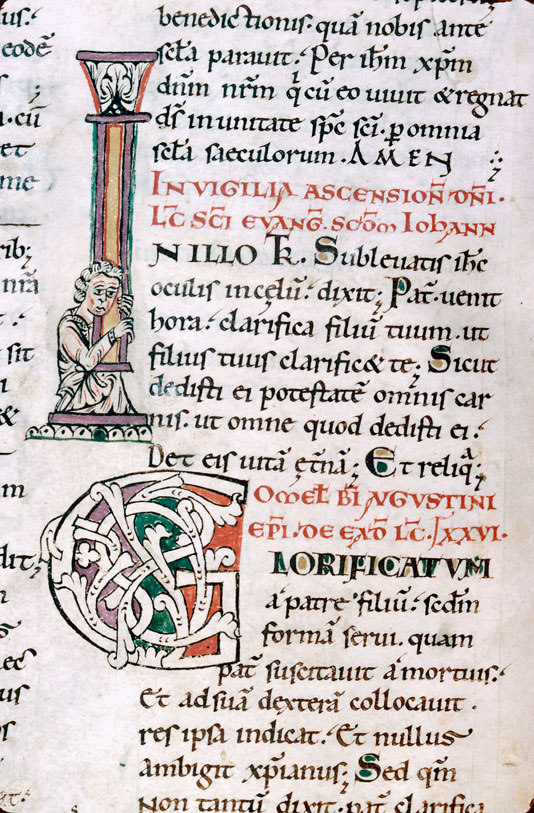 benedictionis. quā nobis ante
sc̄la parauit. Per ih̄m xp̄m
dn̄m nr̄m q̄ cū eo uiuit & regnat
ds̄ in unitate sp̄c sc̄i. ꝑ omnia
sc̄la saeculorum. AMEN
IN VIGILIA ASCENSION̄ DN̄I.
LC̄ SC̄I EVANḠ. SCD̄M IOHANN
IN ILLO TR̄. Subleuatis ih̄c
oculis in cęlū. dixit; Pat̄. uenit
hora. clarifica filiū tuum. ut
filius tuus clarific& te; Sicut
dedisti ei potestatē omnis car
nis. ut omne quod dedisti ei.
Det eis uitā et̄nā; Et reliq̄;
OMEL̄ BĪ AUGUSTINI
EPĪ. DE EAD̄ LC̄. LXXVI.
GLORIFICATUM
a patre filiū. scd̄m
formā serui. quam
pat̄ suscitauit a mortuis.
Et ad suā dexterā collocauit.
res ipsa indicat. Et nullus
ambigit xp̄ianus; Sed qm̄
non tantū dixit. pat̄ clarifica